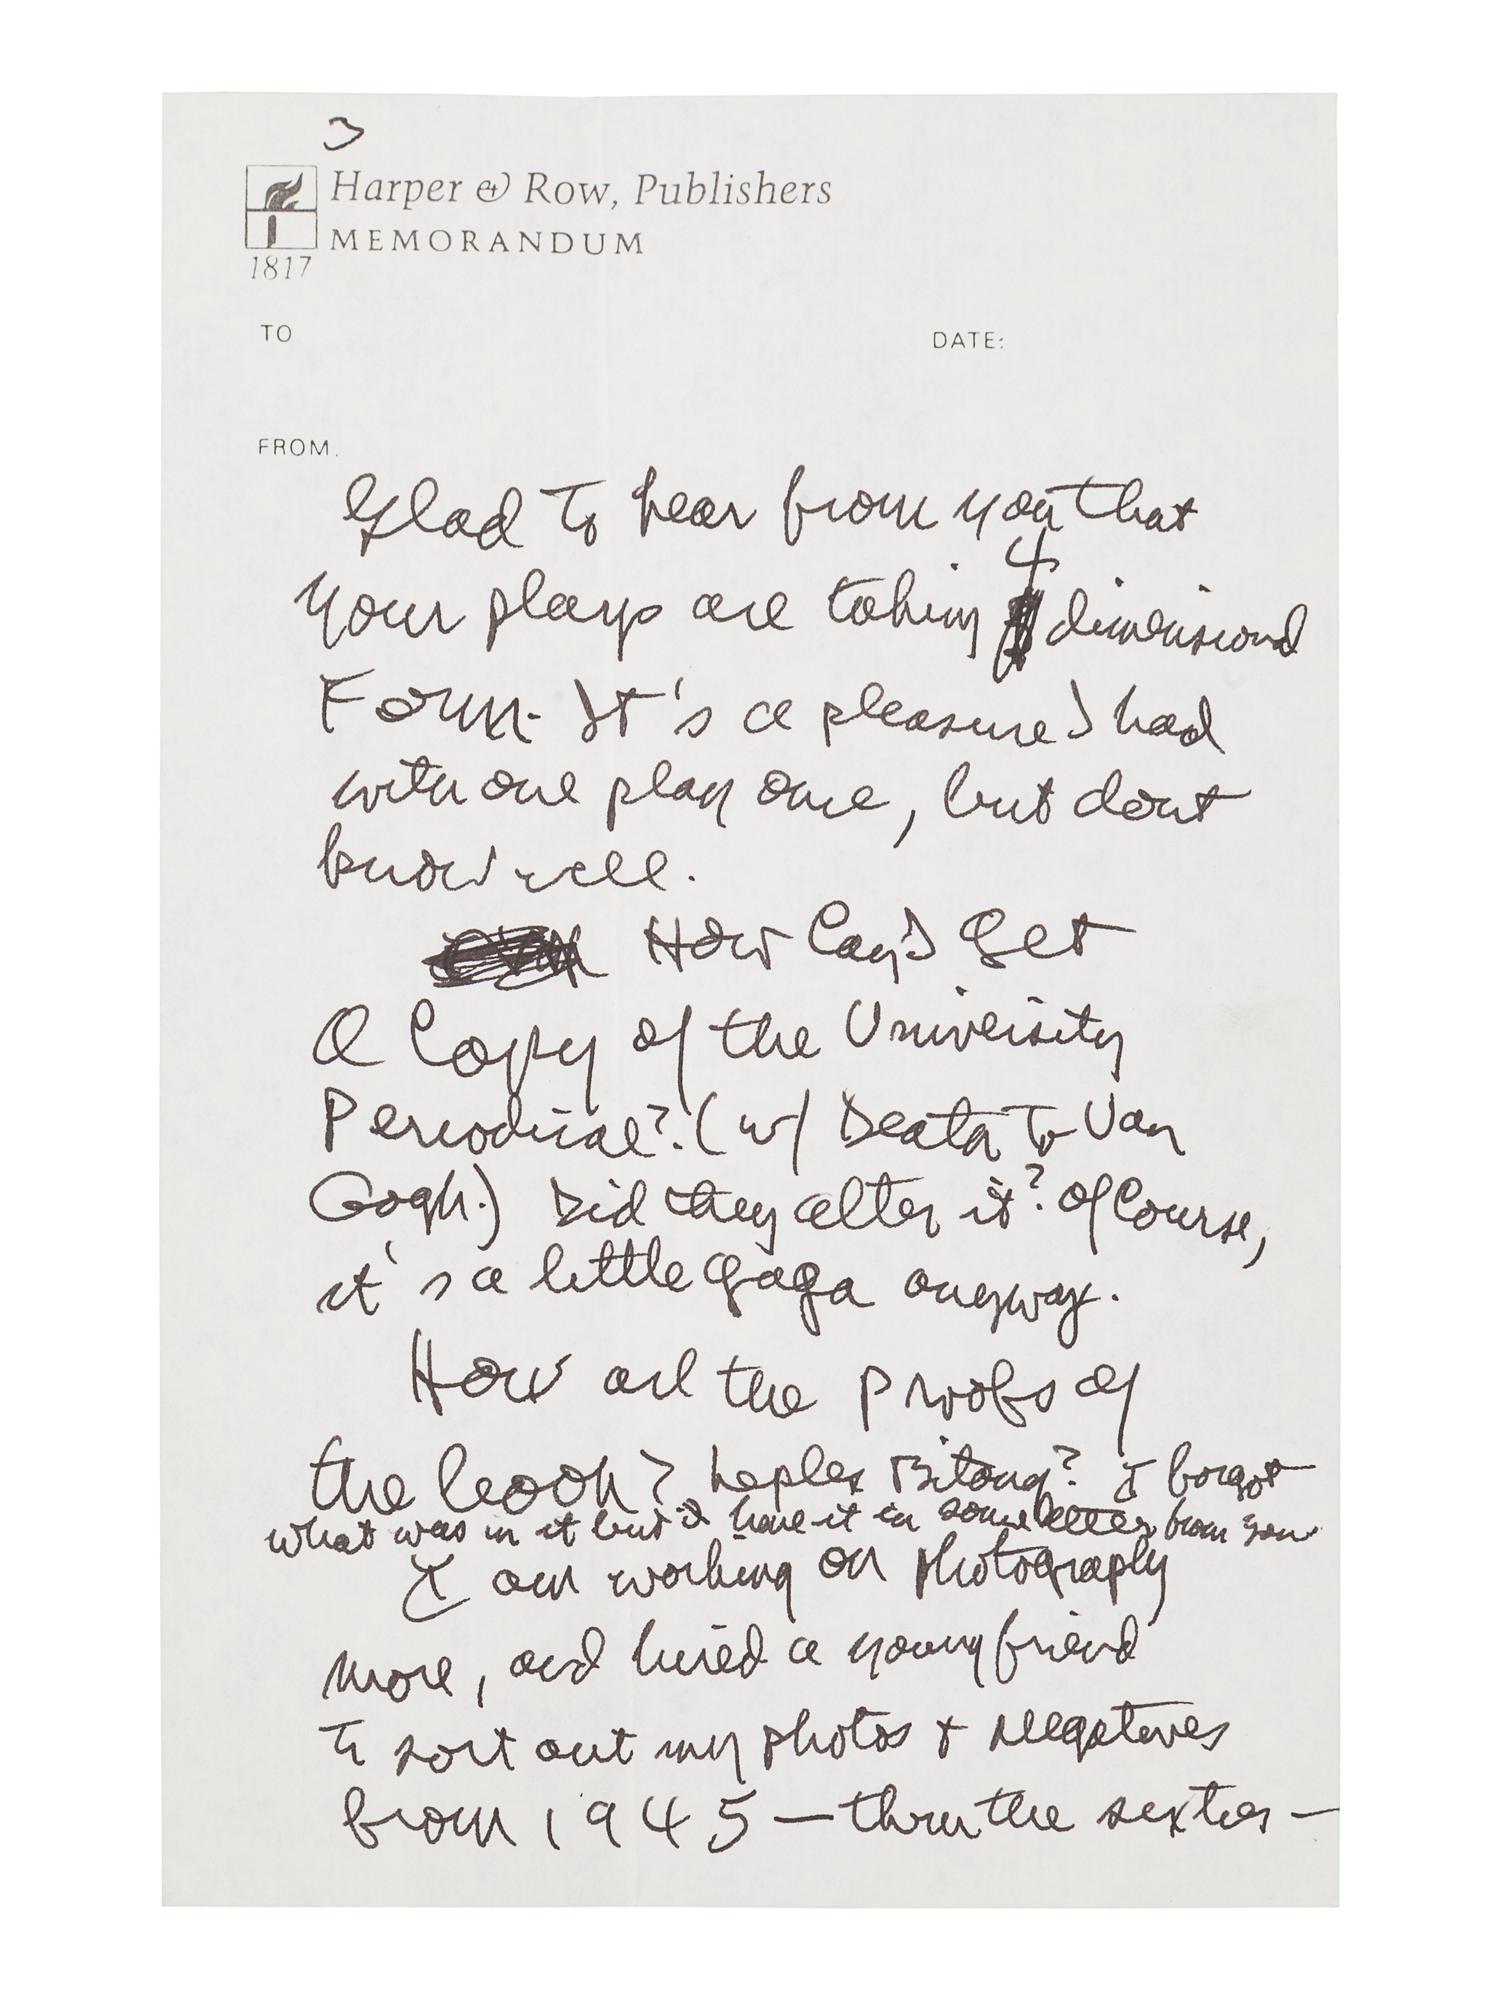 3
Harper & Row, Publishers
MEMORANDUM
1817
TO
DATE:
FROM.
Glad to hear from you that
your plays are taking 4 dimensional
Form. It's a pleasure I had
with one play once, but dont
know well.
How Can I Get
A Copy of the University
Periodical? (w/ Death to Van
Gogh.) Did they alter it? Of Course,
it's a little gaga anyway.
How are the Proofs of
the book? I forgot
what was in it but I have it in some letter from you
I am working on photography
more, and hired a young friend
To sort out my photos & negatives
from 1945 — thru the sixties —